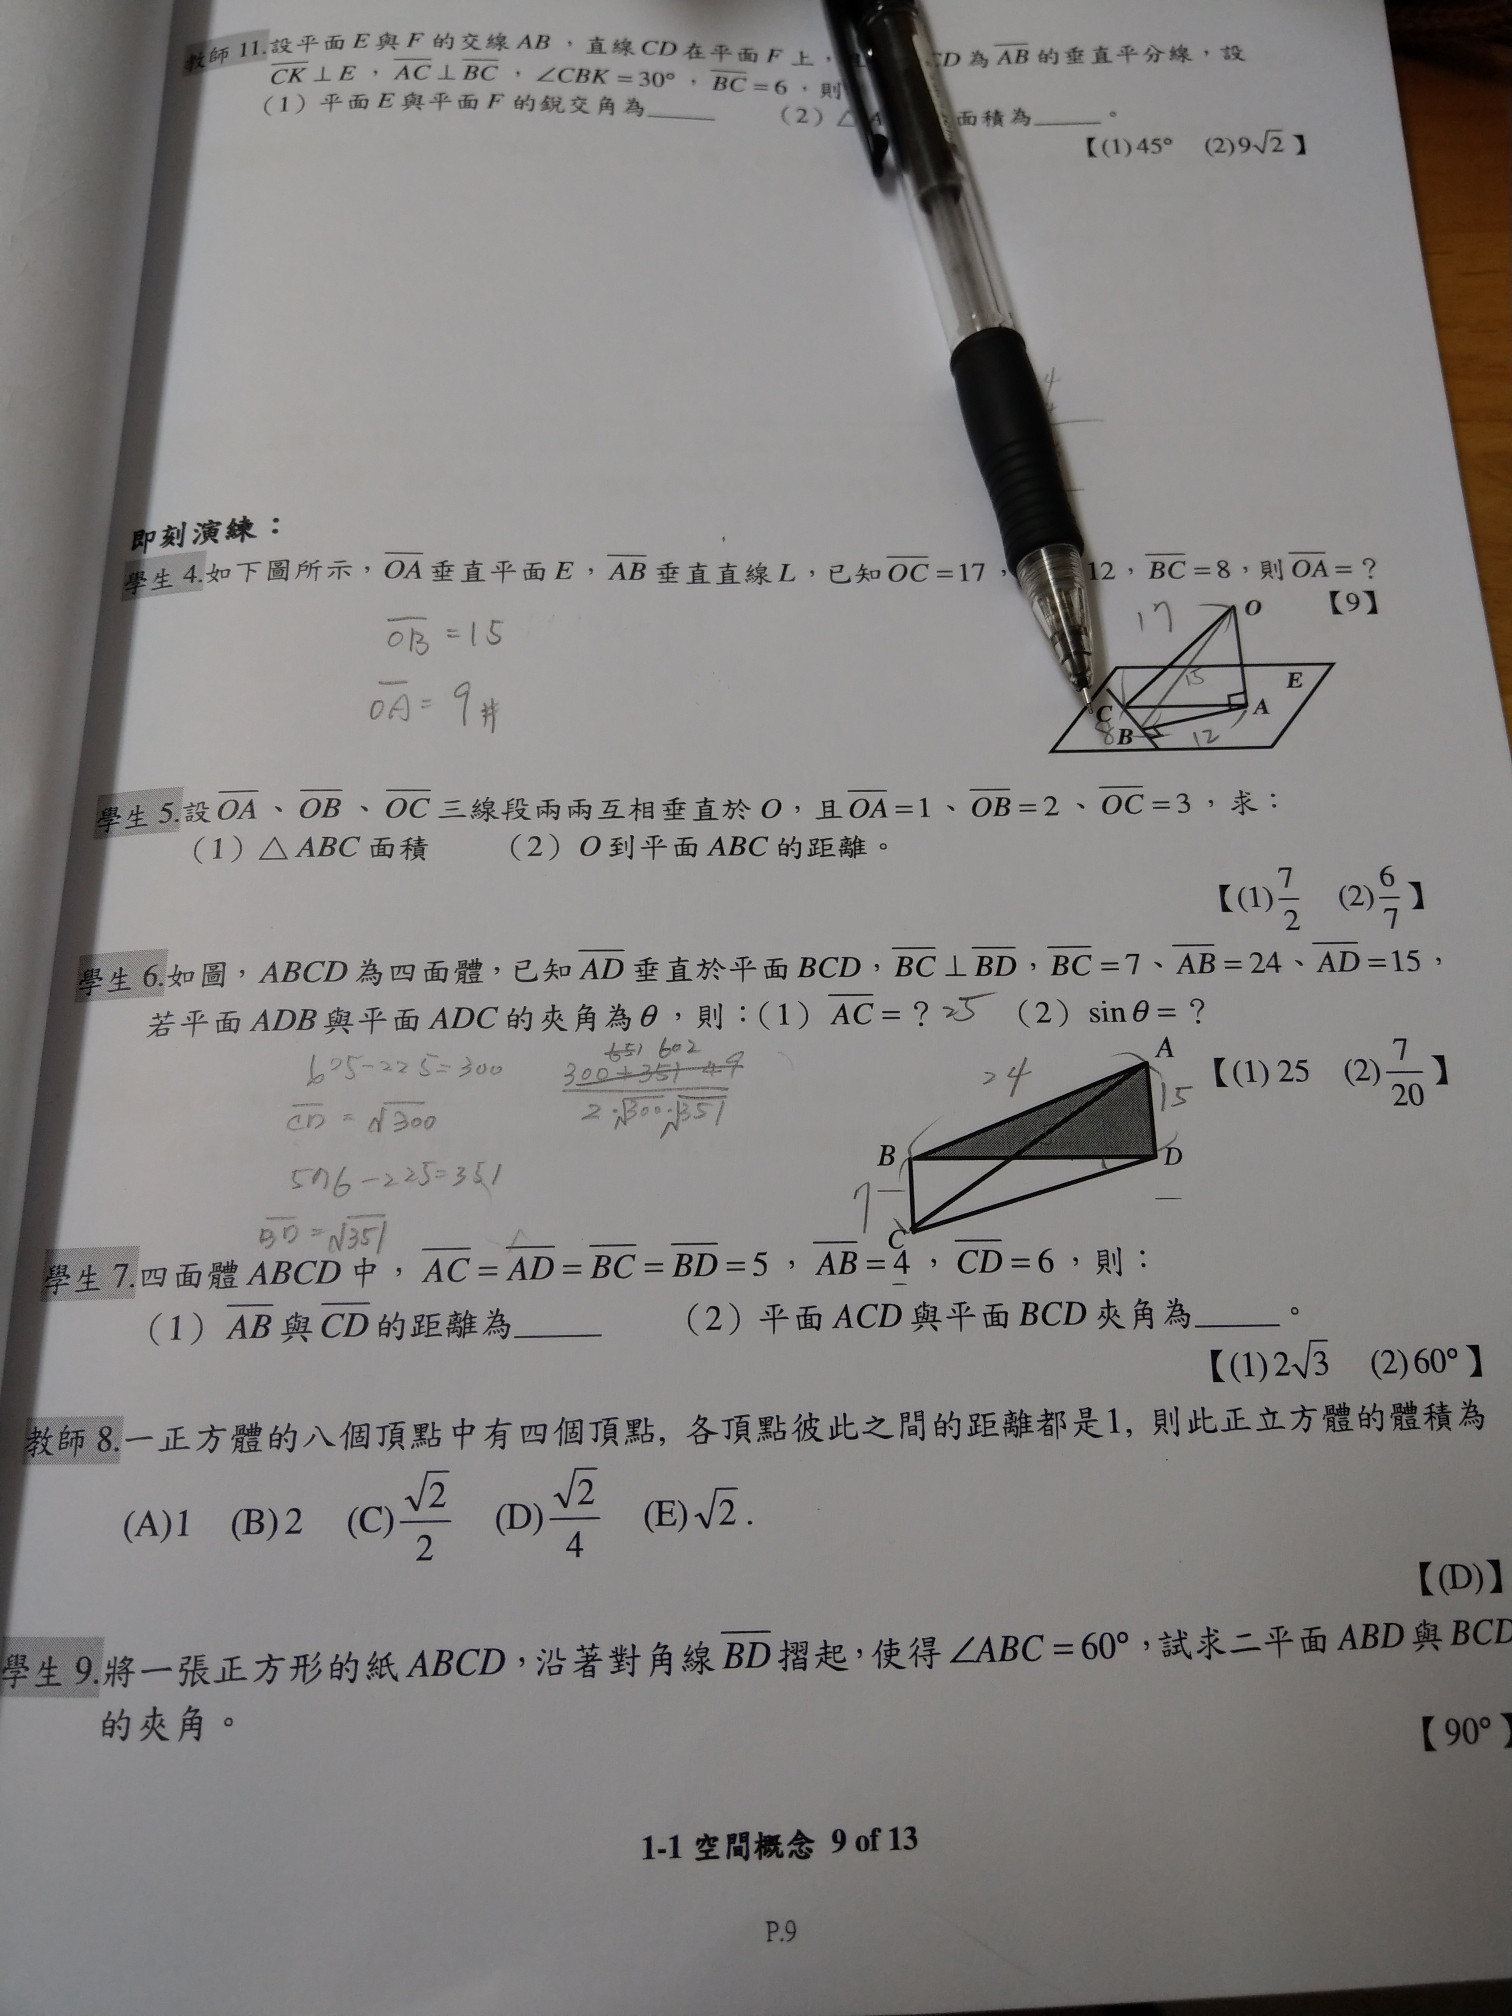 教師 11.設平面 E 與 F 的交線 AB，直線 CD 在平面 F 上， CD 為 AB 的垂直平分線，設
CK⊥E，AC⊥BC，∠CBK=30°，BC=6，則
(1) 平面 E 與平面 F 的銳交角為_____ (2) △A 面積為_____。
【(1)45° (2)9√2】
即刻演練：
學生 4.如下圖所示，OA 垂直平面 E，AB 垂直直線 L，已知 OC=17， 12，BC=8，則 OA=？
【9】
OB=15
OA=9#
17
O
15
E
C
A
8
B
12
學生 5.設 OA、OB、OC 三線段兩兩互相垂直於 O，且 OA=1、OB=2、OC=3，求：
(1) △ABC 面積 (2) O 到平面 ABC 的距離。
【(1)7/2 (2)6/7】
學生 6.如圖，ABCD 為四面體，已知 AD 垂直於平面 BCD，BC⊥BD，BC=7、AB=24、AD=15，
若平面 ADB 與平面 ADC 的夾角為 θ，則：(1) AC=？25 (2) sinθ=？
【(1) 25 (2)7/20】
625-225=300
651 602
300+351-49
2·√300·√351
CD=√300
576-225=351
BD=√351
A
24
15
B
D
7
C
學生 7.四面體 ABCD 中，AC=AD=BC=BD=5，AB=4，CD=6，則：
(1) AB 與 CD 的距離為_____ (2) 平面 ACD 與平面 BCD 夾角為_____。
【(1)2√3 (2)60°】
教師 8.一正方體的八個頂點中有四個頂點, 各頂點彼此之間的距離都是1, 則此正立方體的體積為
(A)1 (B)2 (C)√2/2 (D)√2/4 (E)√2.
【(D)】
學生 9.將一張正方形的紙 ABCD，沿著對角線 BD 摺起，使得 ∠ABC=60°，試求二平面 ABD 與 BCD
的夾角。
【90°】
1-1 空間概念 9 of 13
P.9